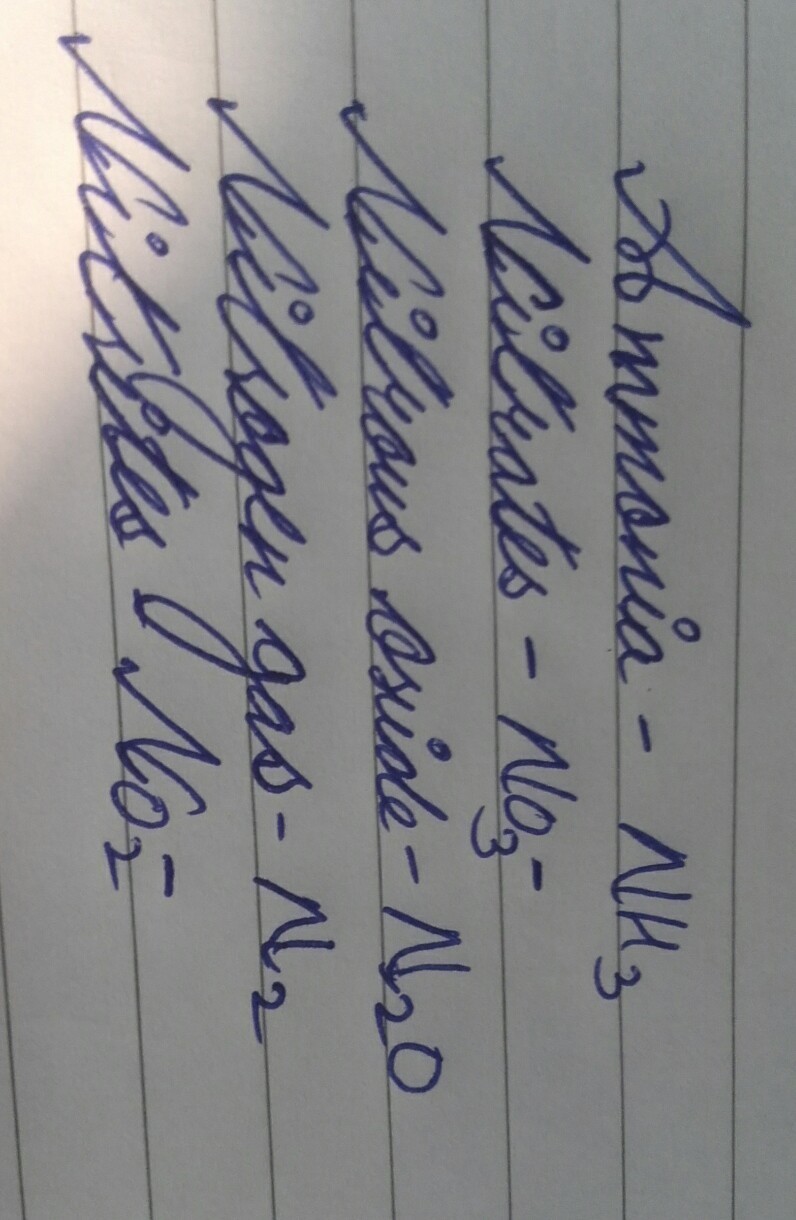 Ammonia - NH₃
Nitrates - NO₃⁻
Nitrous oxide - N₂O
Nitrogen gas - N₂
Nitrites NO₂⁻